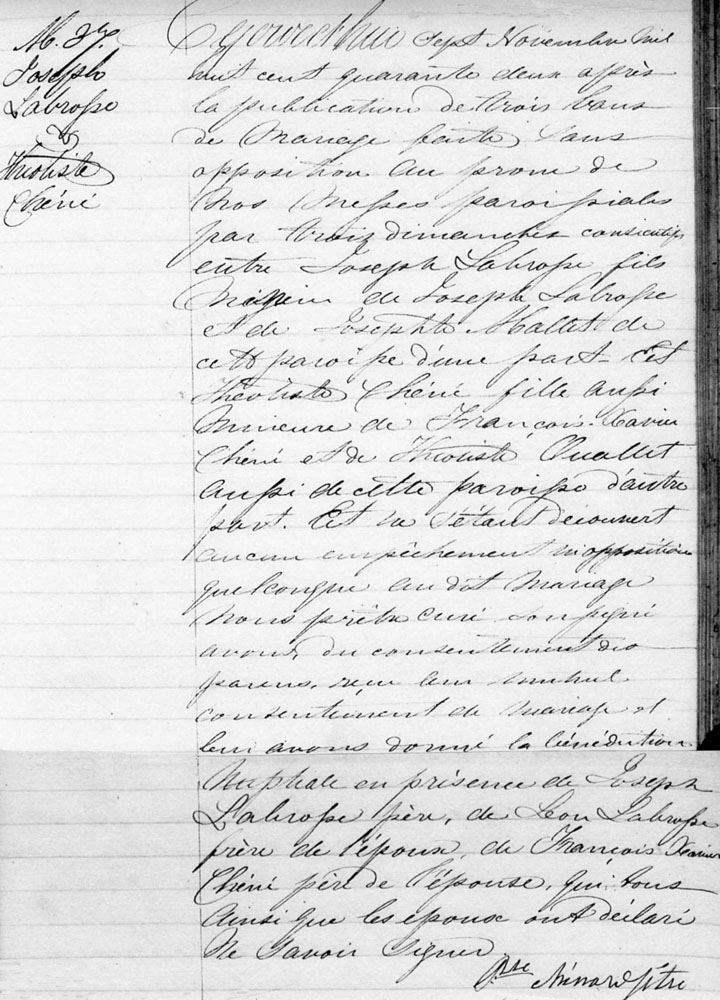 M. 37.
Joseph
Labrosse
&
Théotiste
Chéné
Aujourd'hui Sept Novembre Mil
huit cent quarante deux après
la publication de trois bans
de Mariage faite sans
opposition au prone de
nos Messes paroissiales
par trois dimanches consécutifs
entre Joseph Labrosse fils
Mineur de Joseph Labrosse
et de Josephte Mallet de
cette paroisse d'une part - Et
Théotiste Chéné fille aussi
Mineure de François-Xavier
Chéné et de Théotiste Ouallet
aussi de cette paroisse d'autre
part. Et ne s'étant découvert
aucun empêchement ni opposition
quelconque au dit Mariage
Nous prêtre curé soussigné
avons du consentement des
parens, reçu leur mutuel
consentement de Mariage et
leur avons donné la bénédiction
Nuptiale en présence de Joseph
Labrosse père, de Léon Labrosse
frère de l'époux, de François Xavier
Chéné père de l'épouse, qui tous
ainsi que les epoux ont déclaré
Ne Savoir Signer
Ménard Ptre